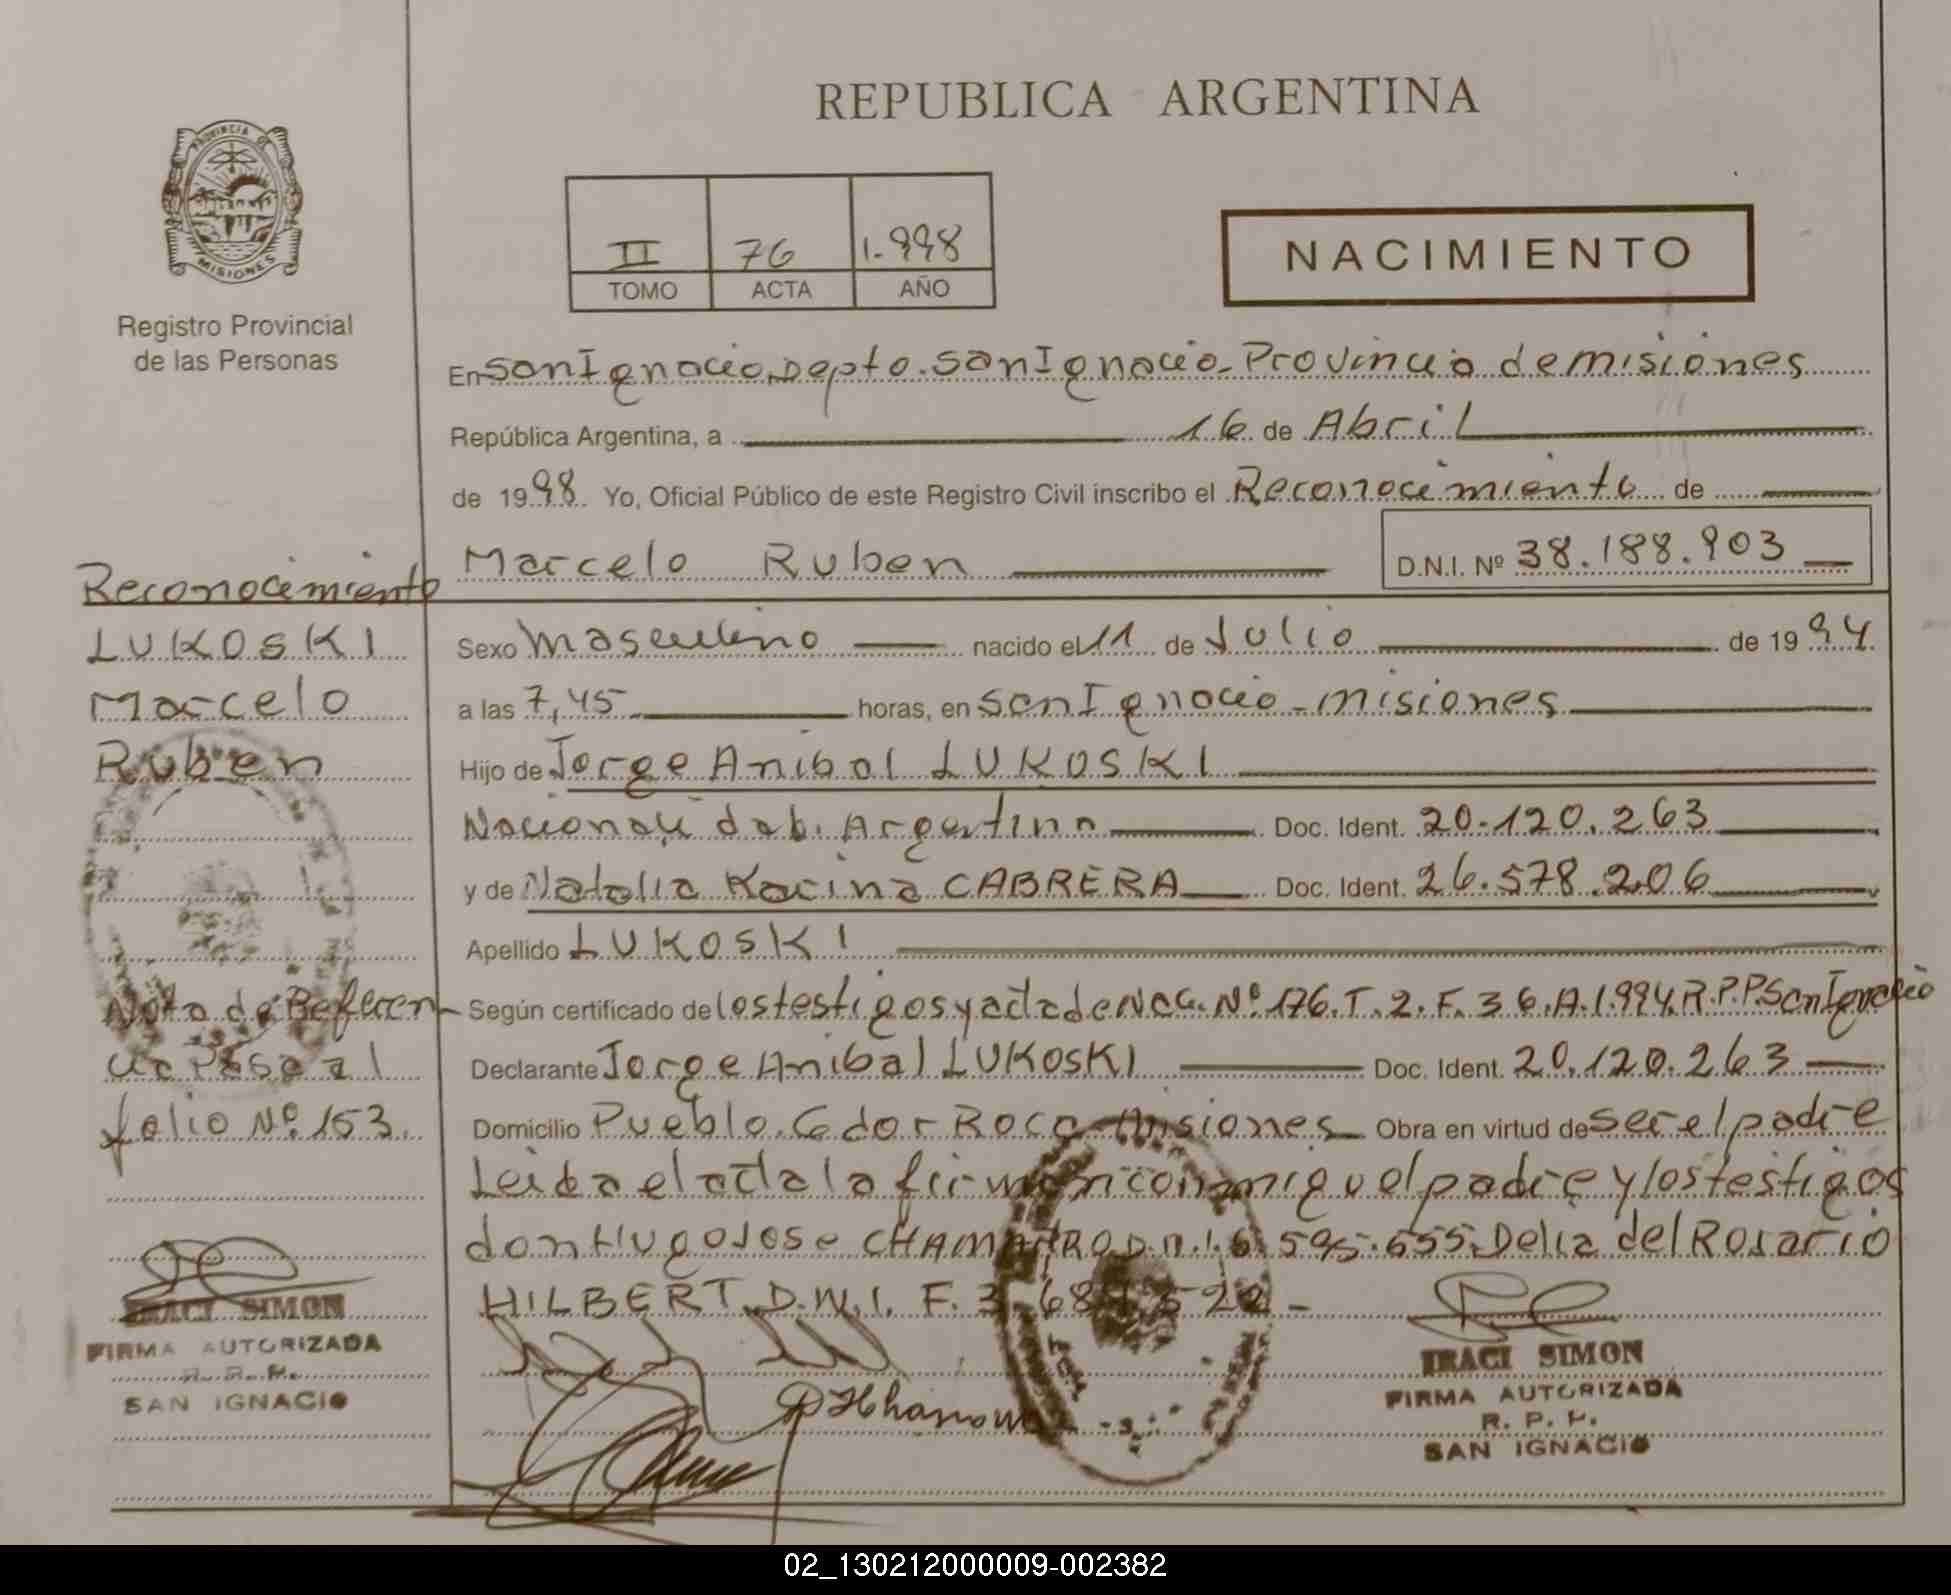 REPUBLICA ARGENTINA
PROVINCIA DE
MISIONES
Registro Provincial
de las Personas
II 76 1.998
TOMO ACTA AÑO
NACIMIENTO
En San Ignacio, Depto. San Ignacio - Provincia de misiones
República Argentina, a 16 de Abril
de 1998. Yo, Oficial Público de este Registro Civil inscribo el Reconocimiento de
Marcelo Ruben D.N.I. Nº 38.188.903
Reconocimiento
LUKOSKI
Marcelo
Ruben
Nota de Referen-
cia Pasa al
folio Nº 153.
IRACI SIMON
FIRMA AUTORIZADA
R. P. P.
SAN IGNACIO
Sexo Masculino nacido el 11 de Julio de 1994.
a las 7,45 horas, en San Ignacio - misiones
Hijo de Jorge Anibal LUKOSKI
Nacionalidad. Argentino Doc. Ident. 20.120.263
y de Natalia Karina CABRERA Doc. Ident. 26.578.206
Apellido LUKOSKI
Según certificado de los testigos y acta de Nac. Nº 176. T. 2. F. 36. A. 1.994. R.P.P. San Ignacio
Declarante Jorge Anibal LUKOSKI Doc. Ident. 20.120.263
Domicilio Pueblo. Gdor Roca Misiones Obra en virtud de ser el padre
Leida el acta la firman con migo el padre y los testigos
don Hugo Jose CHAMARRO D.N.I. 6.595.655. Delia del Rosario
HILBERT. D.N.I. F. 3.68
IRACI SIMON
FIRMA AUTORIZADA
R. P. P.
SAN IGNACIO
02_130212000009-002382